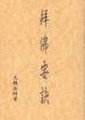 拜佛要訣